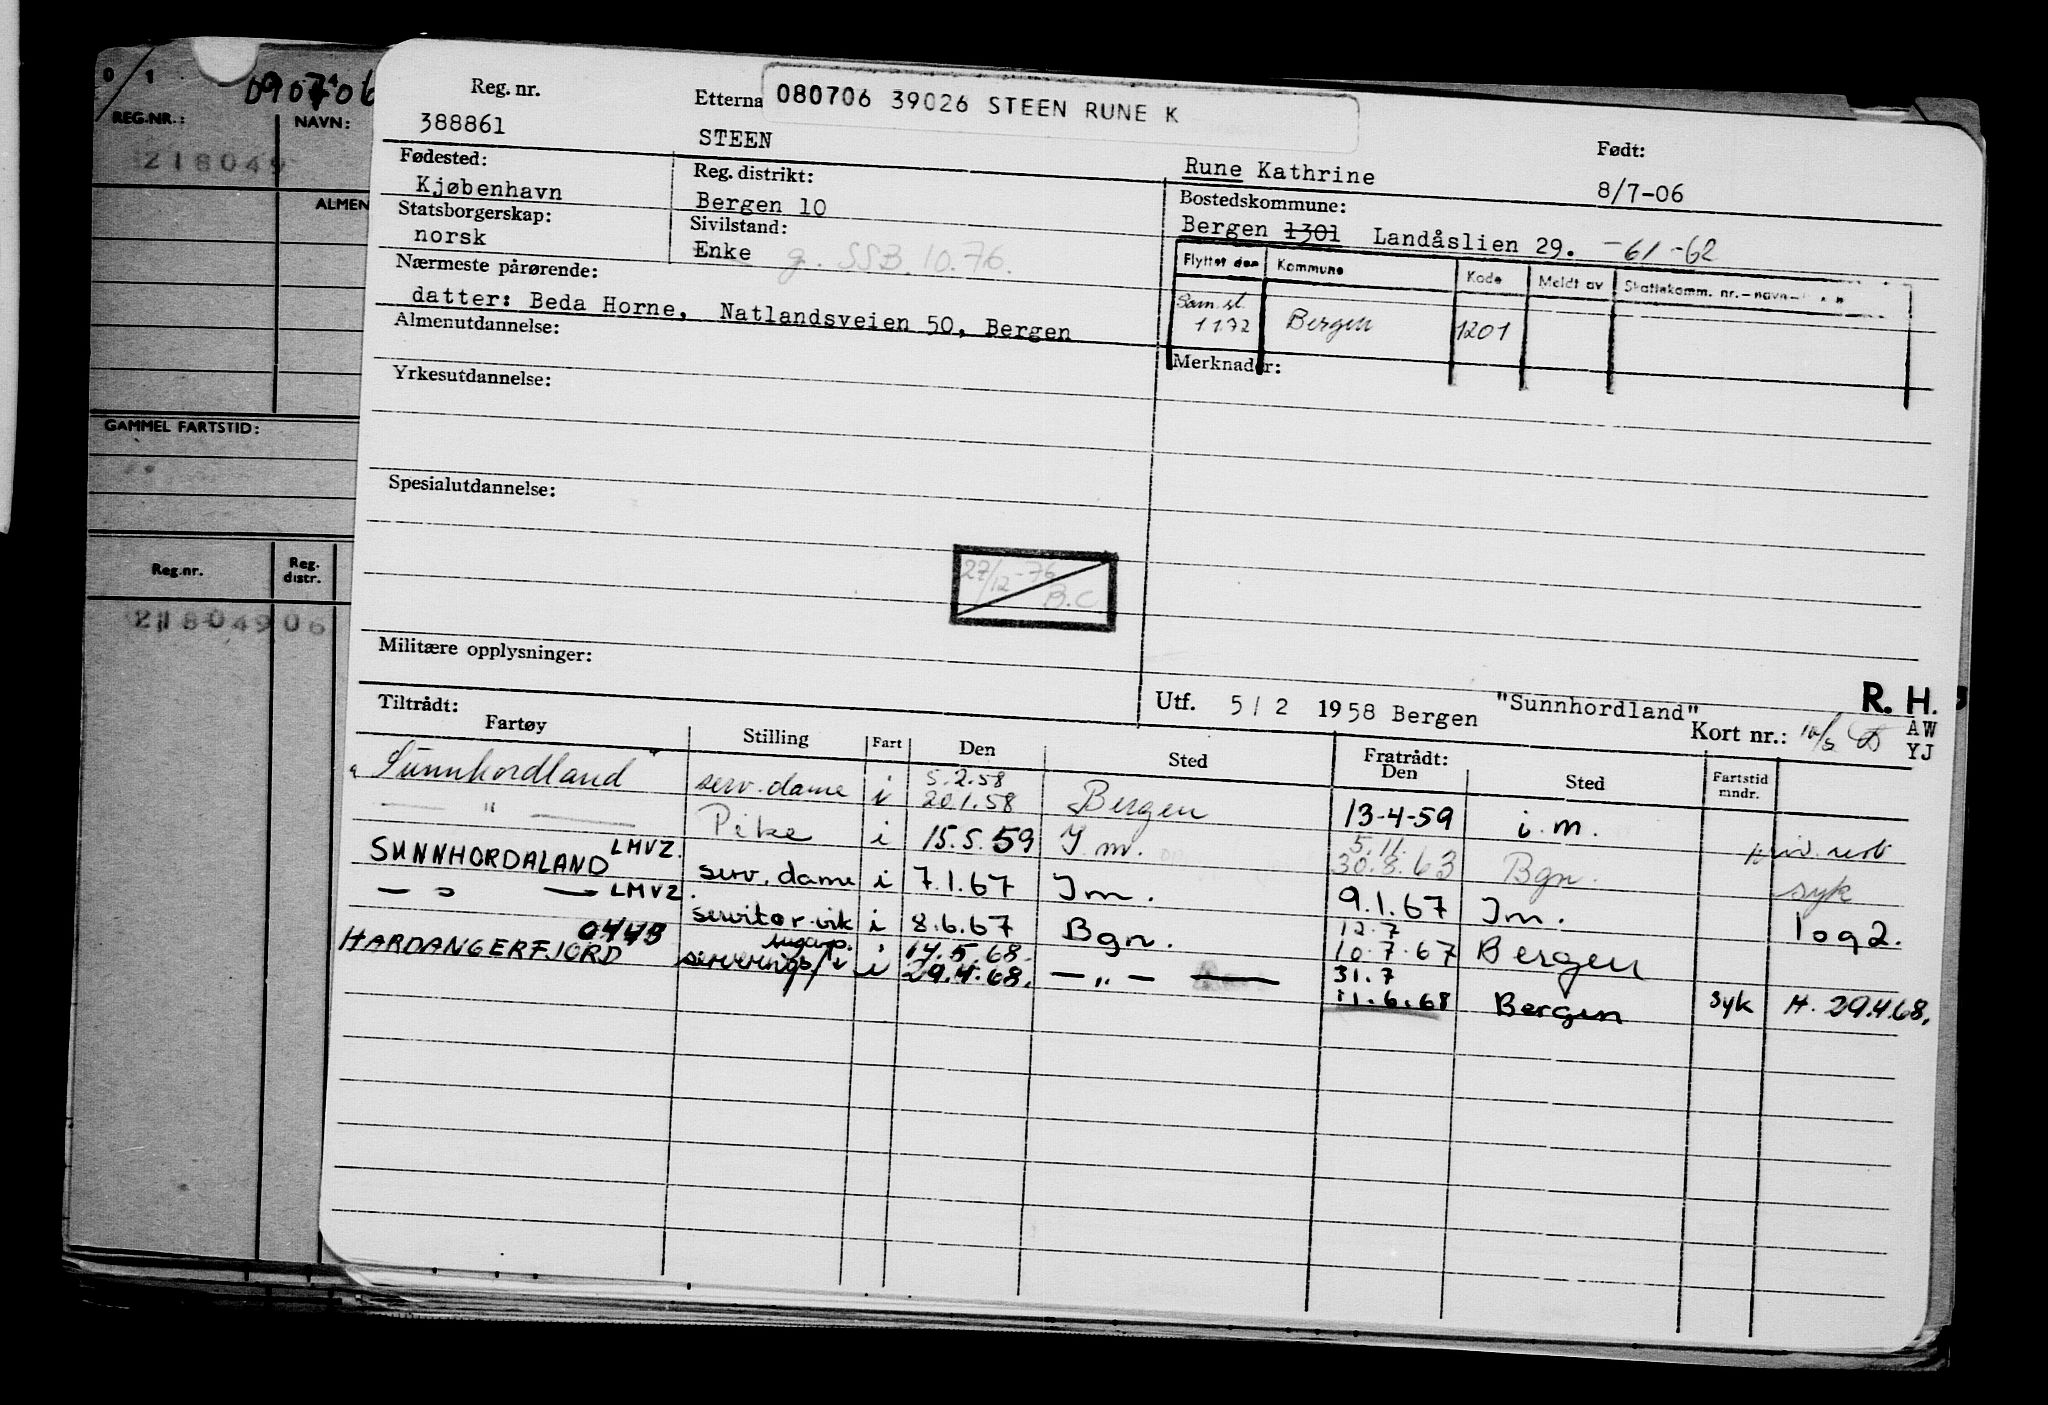 0/1
090706
REG.NR.:
NAVN:
218049
ALMEN
GAMMEL FARTSTID:
Reg.nr.
Reg. distr.
218049 06
Reg. nr.
Etterna
080706 39026 STEEN RUNE K
388861
STEEN
Rune Kathrine
Født:
8/7-06
Fødested:
Kjøbenhavn
Reg. distrikt:
Bergen 10
Bostedskommune:
Bergen 1301 Landåslien 29. -61 -62
Statsborgerskap:
norsk
Sivilstand:
Enke g. SSB.10.76.
Flyttet den Kommune Kode Meldt av Skattekomm. nr.-navn-
Sam.st.
1172 Bergen 1201
Nærmeste pårørende:
datter: Beda Horne, Natlandsveien 50, Bergen
Almenutdannelse:
Merknader:
Yrkesutdannelse:
Spesialutdannelse:
27/12-76
B.C
Militære opplysninger:
Utf. 5/2 1958 Bergen "Sunnhordland"
R. H.
AW
YJ
Kort nr.:
Tiltrådt:
Fartøy Stilling Fart Den Sted Fratrådt: Den Sted Fartstid mndr.
"Sunnhordland" serv.dame i 5.2.58 20.1.58 Bergen 13-4-59 i.m.
— " — Pike i 15.5.59 I m. 5.11. 30.8.63 Bgn. syk
SUNNHORDALAND LMVZ. serv.dame i 7.1.67 Im. 9.1.67 Im.
— " — LMVZ. servitør vik i 8.6.67 Bgn. 12.7 10.7.67 Bergen 1 og 2.
HARDANGERFJORD i 14.5.68. 29.4.68. — " — 31.7 11.6.68 Bergen syk H. 29.4.68.